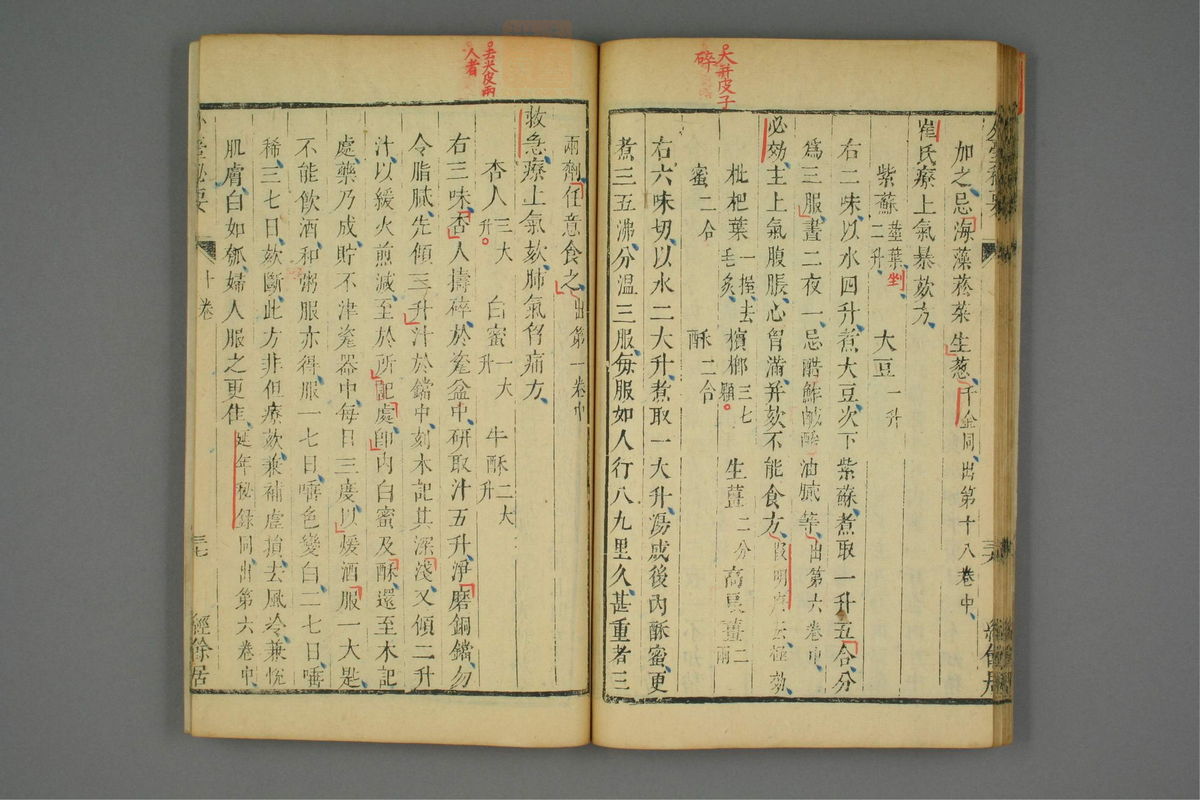 大并皮子
碎
加之忌海藻菘菜生葱千金同出第十八卷中
崔氏療上氣暴欬方
紫蘇莖葉剉二升 大豆一升
右二味以水四升煮大豆次下紫蘇煮取一升五合分
為三服晝二夜一忌酷鮓鹹酸油膩等出第六卷中
必効主上氣腹脹心胷滿并欬不能食方
枇杷葉一握去毛炙 檳榔三七顆 生薑二分 高良薑二兩
蜜二合 酥二合
右六味切以水二大升煮取一大升湯成後內酥蜜更
煮三五沸分温三服每服如人行八九里久甚重者三
去尖皮兩
人者
兩劑任意食之出第一卷中
救急療上氣欬肺氣胷痛方
杏人三大升 白蜜一大升 牛酥二大升
右三味杏人擣碎於瓷盆中研取汁五升淨磨銅鐺勿
令脂膩先傾三升汁於鐺中刻木記其深淺又傾二升
汁以緩火煎減至於所記處即內白蜜及酥還至木記
處藥乃成貯不津瓷器中每日三度以煖酒服一大匙
不能飲酒和粥服亦得服一七日唾色變白二七日唾
稀三七日欬斷此方非但療欬兼補虛損去風冷兼悅
肌膚白如瓠婦人服之更佳延年秘錄同出第六卷中
十卷
三七
經餘居